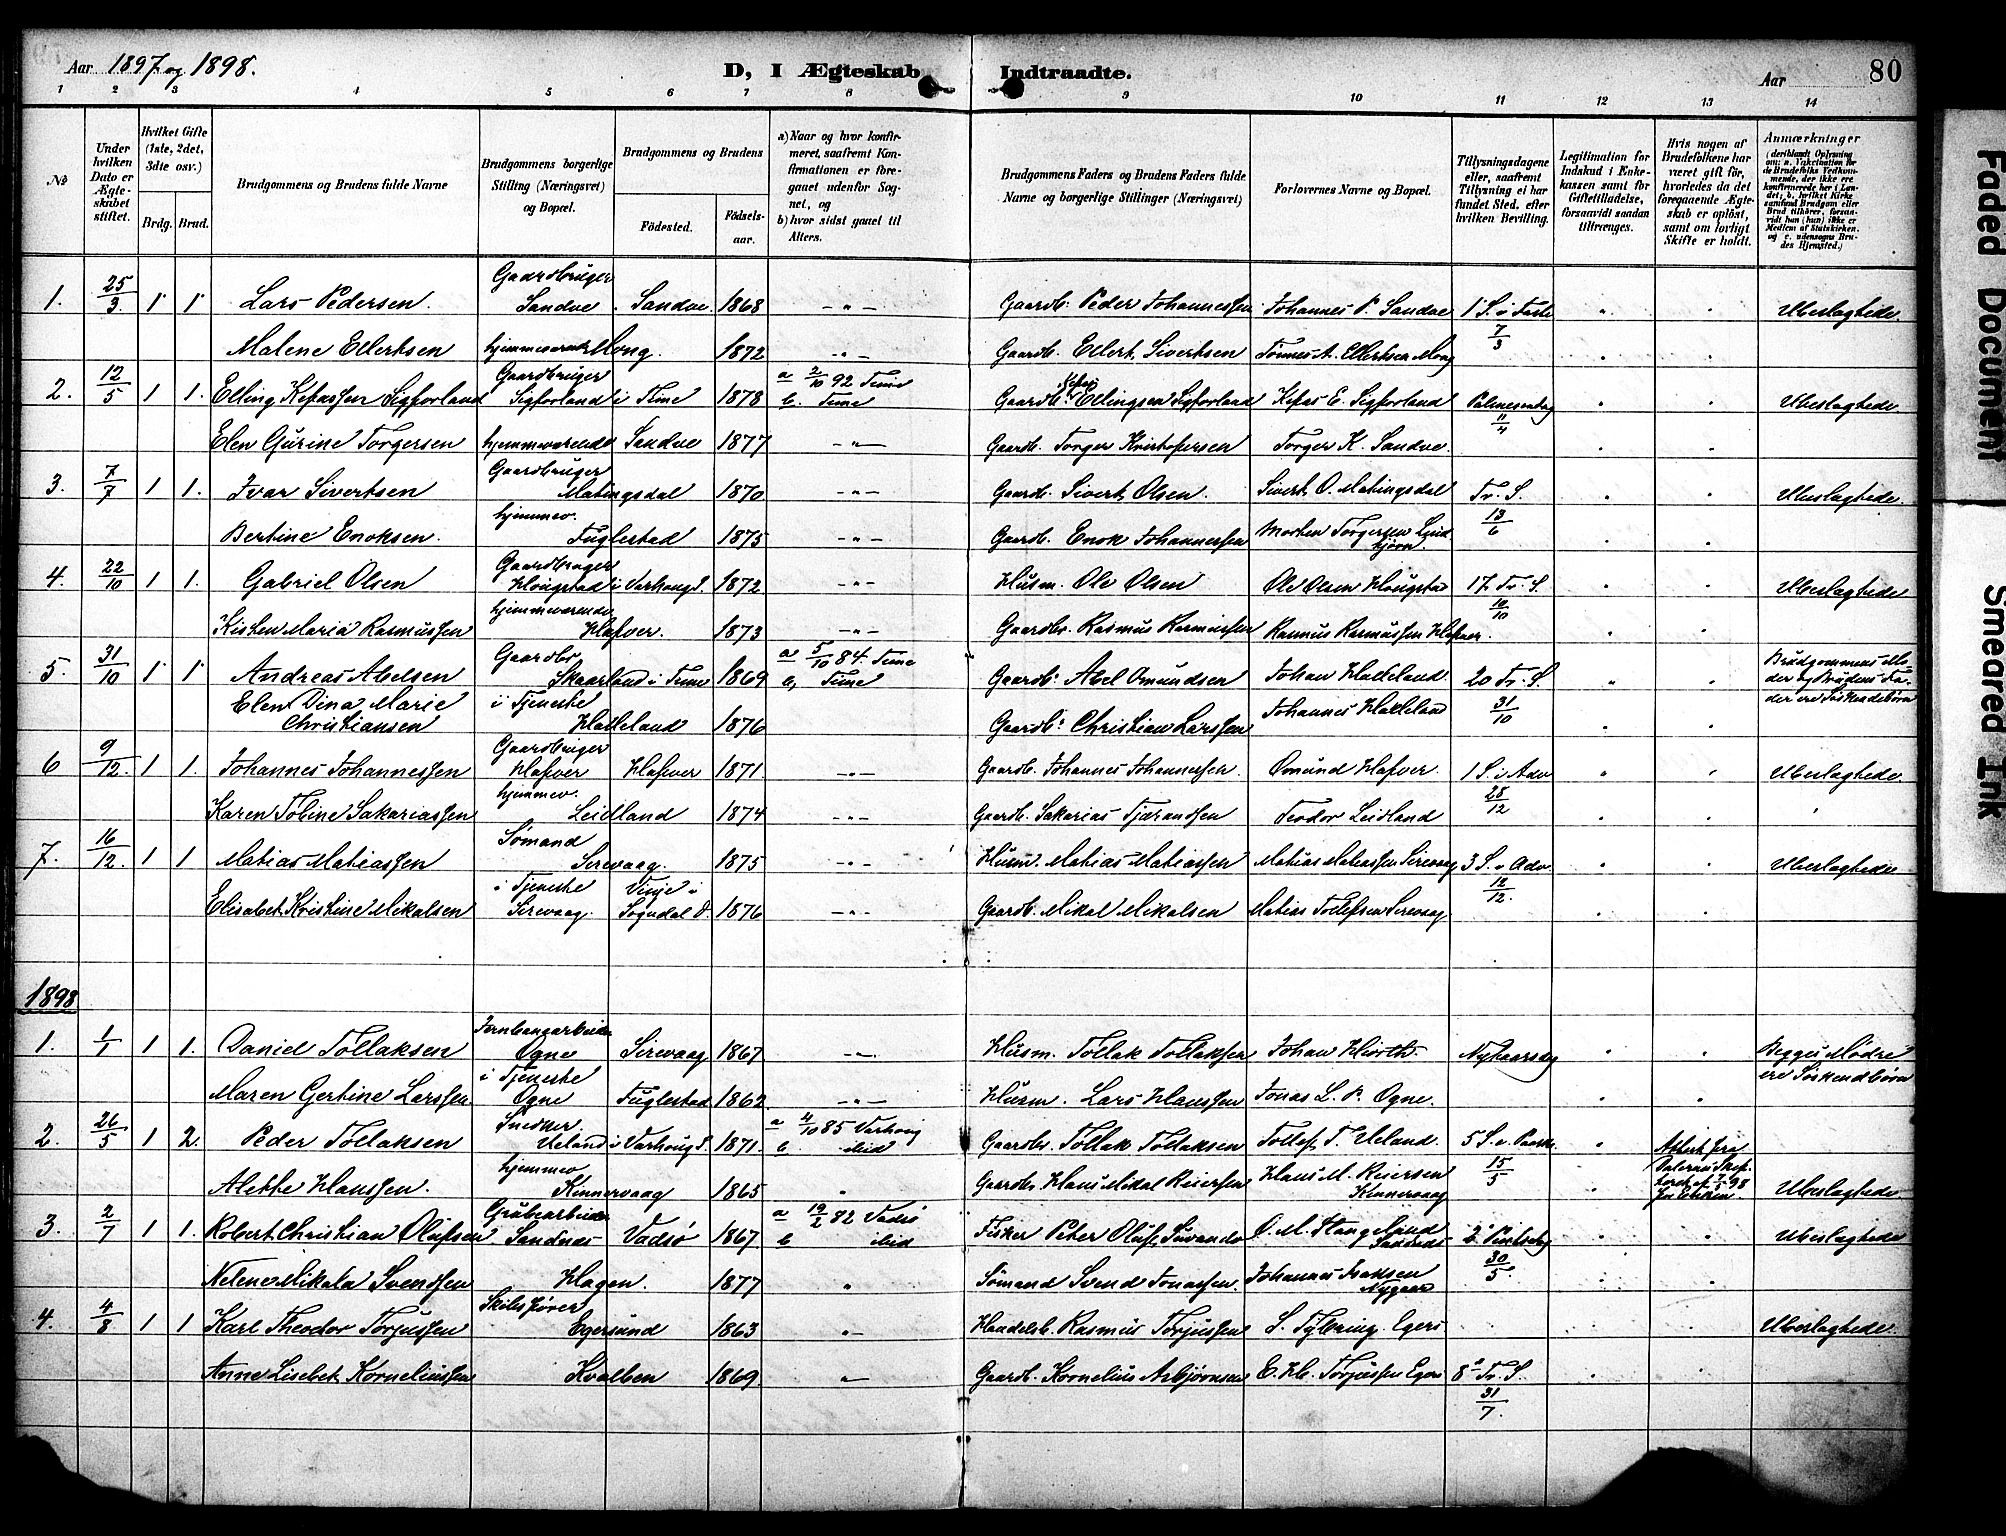 Aar 1897 og 1898. D, I Ægteskab Indtraadte. Aar 80
1 2 3 4 5 6 7 8 9 10 11 12 13 14
No
Under hvilken Dato er Ægteskabet stiftet.
Hvilket Gifte (1ste, 2det, 3dte osv.)
Brdg. Brud.
Brudgommens og Brudens fulde Navne
Brudgommens borgerlige Stilling (Næringsvei) og Bopæl.
Brudgommens og Brudens
Födested. Födsels-aar.
a) Naar og hvor konfirmeret, saafremt Konfirmationen er foregaaet udenfor Sognet, og
b) hvor sidst gaaet til Alters.
Brudgommens Faders og Brudens Faders fulde Navne og borgerlige Stillinger (Næringsvei)
Forlovernes Navne og Bopæl.
Tillysningsdagene eller, saafremt Tillysning ei har fundet Sted, efter hvilken Bevilling.
Legitimation for Indskud i Enkekassen samt for Giftetilladelse, forsaavidt saadan tiltrænges.
Hvis nogen af Brudefolkene har været gift før, hvorledes da det foregaaende Ægteskab er opløst, samt om lovligt Skifte er holdt.
Anmærkninger (deriblandt Oplysning om: a. Vakcination for de Brudefolks Vedkommende, der ikke ere konfirmerede her i Landet; b. hvilket Kirkesamfund Brudgom eller Brud tilhører, forsaavidt han (hun) ikke er Medlem af Statskirken. og c. udensogns Brudes Hjemsted.)
1. 25/3 1 1 Lars Pedersen. Gaardbruger Sandve Sandve. 1868 - " - Gaardb. Peder Johannessen Johannes P. Sandve 1 S. i Faste 7/3 " " Ubeslægtede.
Malene Ellertsen hjemmeværende Mong. 1872 - " - Gaardb. Ellert Sivertsen Tønnes A. Ellertsen Mong
2. 12/5 1 1. Elling Kefassen Sigforland Gaardbruger Sigforland i Time 1878 a 2/10 92 Time b. Time Gaardb. Kefas Ellingsen Sigforland Kefas E. Sigforland Palmesøndag 11/4 Ubeslægtede
Elen Gurine Torgersen hjemmeværende Sandve 1877 - " - Gaardb. Torger Kristofersen Torger K. Sandve.
3. 7/7 1 1. Ivar Sivertsen Gaardbruger Matingsdal 1870 - " - Gaardb. Sivert Olsen. Sivert O. Matingsdal Tr. S. 13/6 Ubeslægtede.
Bertine Enoksen. hjemmev. Fuglestad 1875 - " - Gaardb. Enok Johannessen Morten Torgersen
4. 22/10 1 1. Gabriel Olsen Gaardbruger Hougstad i Varhoug S. 1872 - " - Husm. Ole Olsen Ole Olsen Hougstad 17 Tr. S. 10/10 Ubeslægtede
Kisten Maria Rasmussen hjemmeværende Hafver. 1873 - " - Gaardbr. Rasmus Rasmussen Rasmus Rasmussen Hafver.
5. 31/10 1 1 Andreas Abelsen Gaardbr Skaarland i Time 1869 a 5/10 84 Time b, Time Gaardb. Abel Omundsen Johan Hatleland. 20 Tr. S. 31/10 Brudgommens Moder og Brudens Fader ere Søskendebørn
Elen Dina Marie Christiansen i Tjeneste Hatleland 1876 Gaardb. Christian Larssen Johannes Hatleland
6 9/12. 1 1. Johannes Johannessen Gaardbruger Hafver Hafver 1871 - " - Gaardb. Johannes Johannessen. Omund Hafver. 1 S. i Adv 28/12 Ubeslægtede
Karen Tobine Sakariassen hjemmev. Leidland 1874 - " - Gaardb. Sakarias Tjærandsen Teodor Leidland
7. 16/12. 1 1 Matias Matiassen Sømand Sirevaag. 1875 - " - Husm. Matias Matiassen Matias Matiassen Sirevaag 3 S. i Adv. 12/12. Ubeslægtede
Elisabet Kristine Mikalsen i Tjeneste Sirevaag. Vinje i Sogndal D. 1876 - " - Gaardb. Mikal Mikalsen Matias Tollefsen Sirevaag
1898
1. 1/1 1 1. Daniel Tollaksen Jernbanearbeider Ogne Sirevaag 1867 - " - Husm. Tollak Tollaksen Johan Hiorth. Nytaarsdag Begges Mødre ere Søskendbørn
Maren Gertine Larssen i Tjeneste Ogne Fuglestad 1862. - " - Husm. Lars Hanssen Jonas L. P. Ogne.
2. 26/5 1 2. Peder Tollaksen Snedker. Ueland i Varhoug S. 1871. a 4/10 85 Varhoug b ibid Gaardbr. Tollak Tollaksen Tollef T. Ueland. 5 S. e. Paaske 15/5 Attest fra
Alethe Hanssen. hjemmev Kinnervaag 1865 " Gaardbr Hans Mikal Reiersen Hans M. Reiersen Kinnervaag Ubeslægtede
3. 2/7 1 1. Robert Christian Olufsen Grubearbeider Sandnæs Vadsø 1867. a 19/2 82 Vadsø b ibid Fisker Peter Oluf 2 Pintsedag 30/5 Ubeslægtede
Nelene Mikala Svendsen Hagen. 1877 " Sømand Svend Jonassen. Johannes Isaksen Nygaard
4. 4/8 1 1 Karl Theodor Torjussen Skibsfører Egersund 1863 " Handelsb. Rasmus Torjussen Egers Ubeslægtede.
Anne Lisebet Korneliussen Kvalben 1869. " Gaardb. Kornelius Asbjørnsen Torjussen Egers 8 Tr. S. 31/7.
Faded Document
Smeared Ink